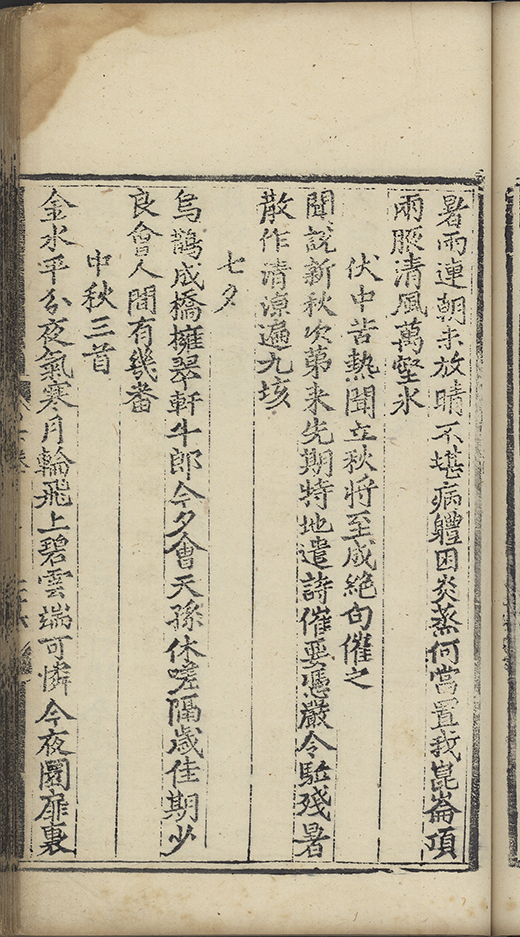 暑雨連朝未放晴不堪病軆困炎蒸何當置我崑崙項
兩腋清風萬壑氷
伏中苦熱聞立秋將至成絶句催之
聞說新秋次第来先期特地遣詩催要憑嚴令駈殘暑
散作清凉遍九垓
七夕
烏鵲成橋擁翠軿牛郎今夕會天孫休嗟隔歲佳期少
良會人間有幾畨
中秋三首
金水平分夜氣寒月輪飛上碧雲端可憐今夜圜扉裏